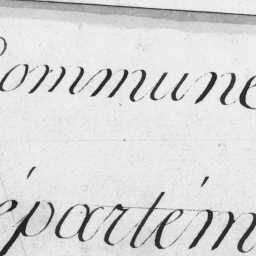 Commune
départém